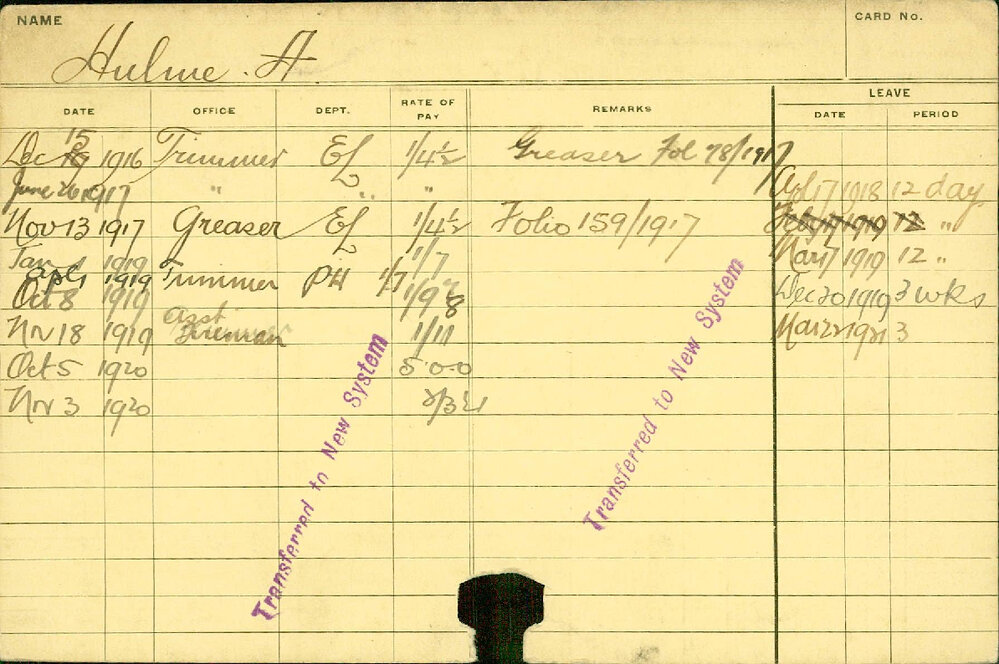 NAME
CARD No.
Hulme. A
DATE OFFICE DEPT. RATE OF PAY REMARKS LEAVE
DATE PERIOD
Dec 15 1916 Trimmer EL 1/4½ Greaser Fol 78/1917
June 26 1917 " " " Apl 17 1918 12 day
Nov 13 1917 Greaser EL 1/4½ Folio 159/1917 Feby 17 1919 12 "
Jan 1 1919 1/7 Mar 17 1919 12 "
Apl 1 1919 Trimmer PH 1/7
Oct 8 1919 1/9 Dec 20 1919 3 wks
Nv 18 1919 Asst Fireman 1/11 Mar 22 1921 3
Oct 5 1920 5-0-0
Nv 3 1920
Transferred to New System
Transferred to New System